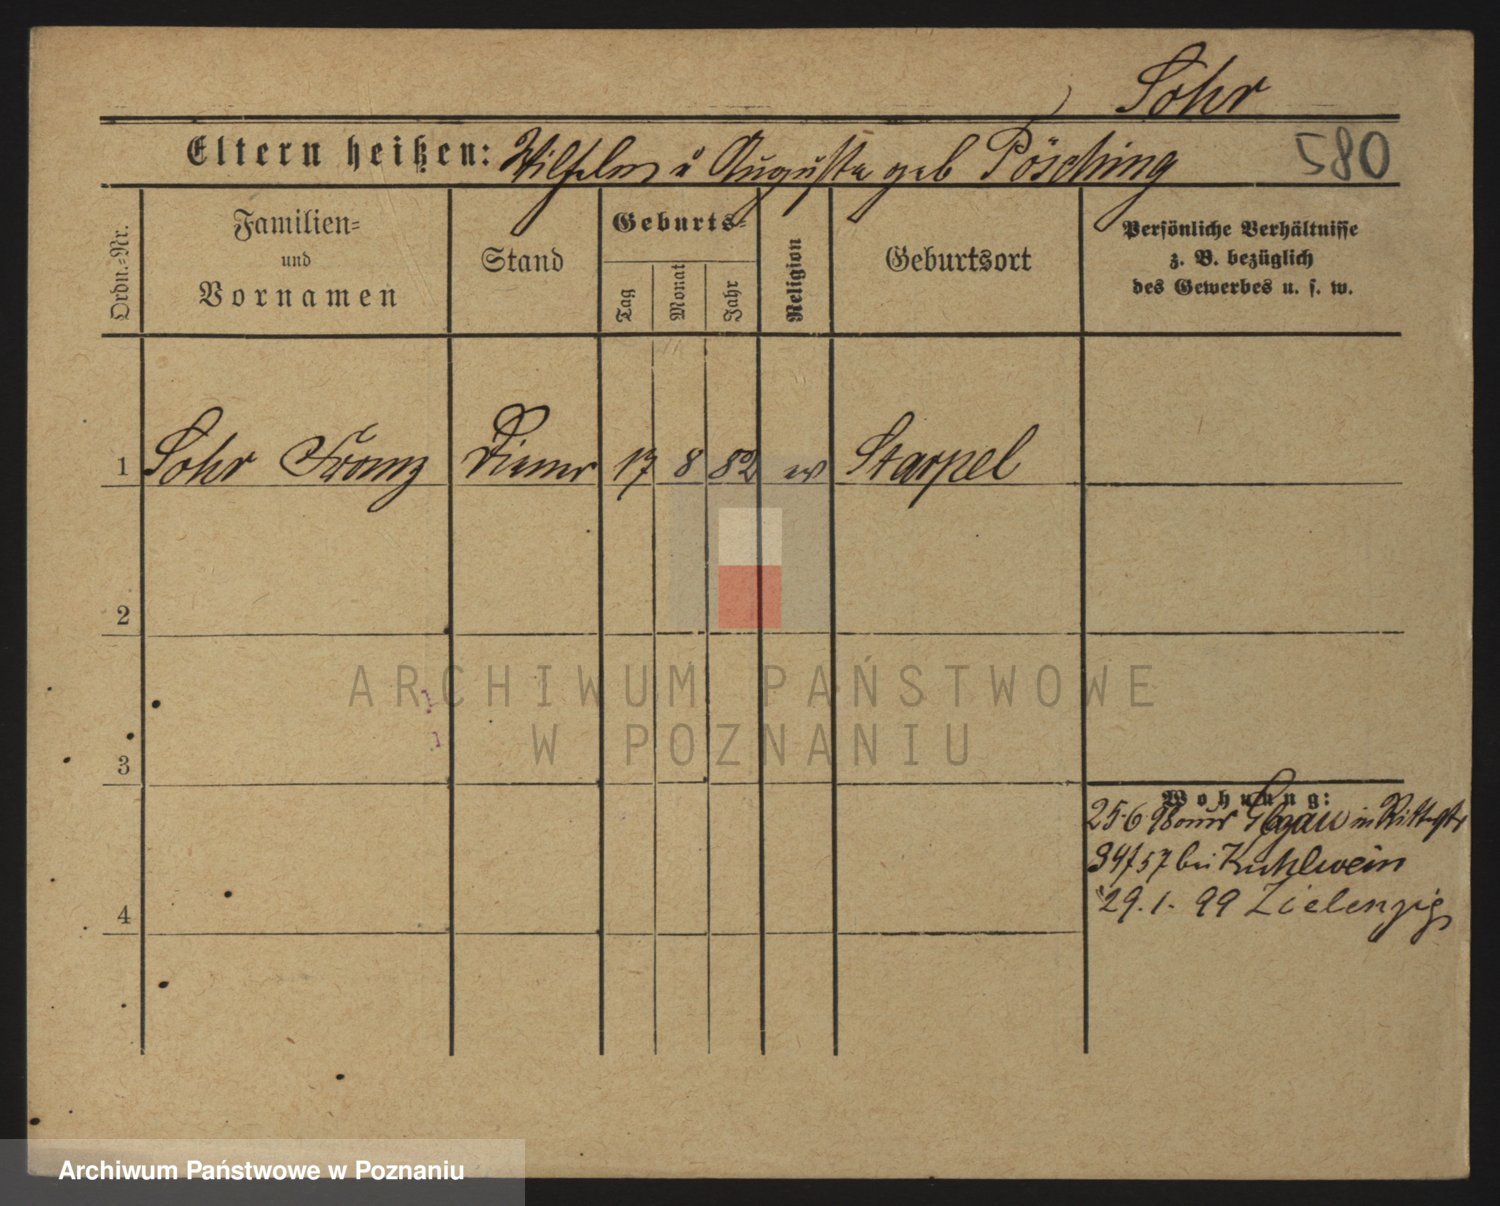 Sohr
Eltern heißen: Wilhelm u Auguste geb Pösching
580
Ordn.-Nr.
Familien-
und
Vornamen
Stand
Geburts-
Tag
Monat
Jahr
Religion
Geburtsort
Persönliche Verhältnisse
z. B. bezüglich
des Gewerbes u. s. w.
1 Sohr Franz Diener 17 8 82 ev Starpel
2
3
Wohnung:
25.6.98 in Ritterstr
34/37 bei Kuhlwein
29.1.99 Zielenzig
4
ARCHIWUM PAŃSTWOWE
W POZNANIU
Archiwum Państwowe w Poznaniu